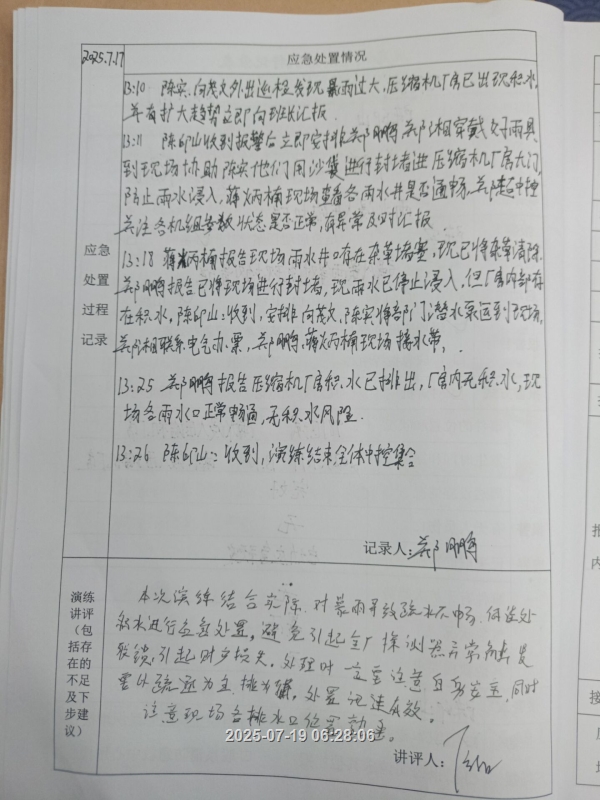 2025.7.17
应急处置情况
应急
处置
过程
记录
13:10 陈实、向茂文外出巡检发现暴雨过大,压缩机厂房已出现积水,
并有扩大趋势立即向班长汇报.
13:11 陈邱山收到报警后立即安排郑鹏 相穿戴好雨具
到现场协助陈实他们用沙袋进行封堵进压缩机厂房大门
防止雨水浸入,蒋炳楠现场查看各雨水井是否通畅. 中控
关注各机组参数、状态是否正常,有异常及时汇报.
13:18 蒋炳楠报告现场雨水井口存在杂草堵塞,现已将杂草清除.
郑鹏报告已将现场进行封堵,现雨水已停止浸入,但厂房内部存
在积水,陈邱山:收到,安排向茂文、陈实将部门潜水泵运到现场,
相联系电气办票,郑鹏、蒋炳楠现场接水带,
13:25 郑鹏报告压缩机厂房积水已排出,厂房内无积水,现
场各雨水口正常畅通,无积水风险.
13:26 陈邱山:收到,演练结束全体中控集合
记录人: 郑鹏
演练
讲评
(包
括存
在的
不足
及下
步建
议)
本次演练结合实际,对暴雨导致疏水不畅、
积水进行应急处置,避免引起全厂探测器异常
联锁,引起财产损失。处理时一定要注意自身安全,同时
要以疏通为主,排为辅,处置迅速有效。
注意现场各排水口位置
2025-07-19 06:28:06
讲评人: